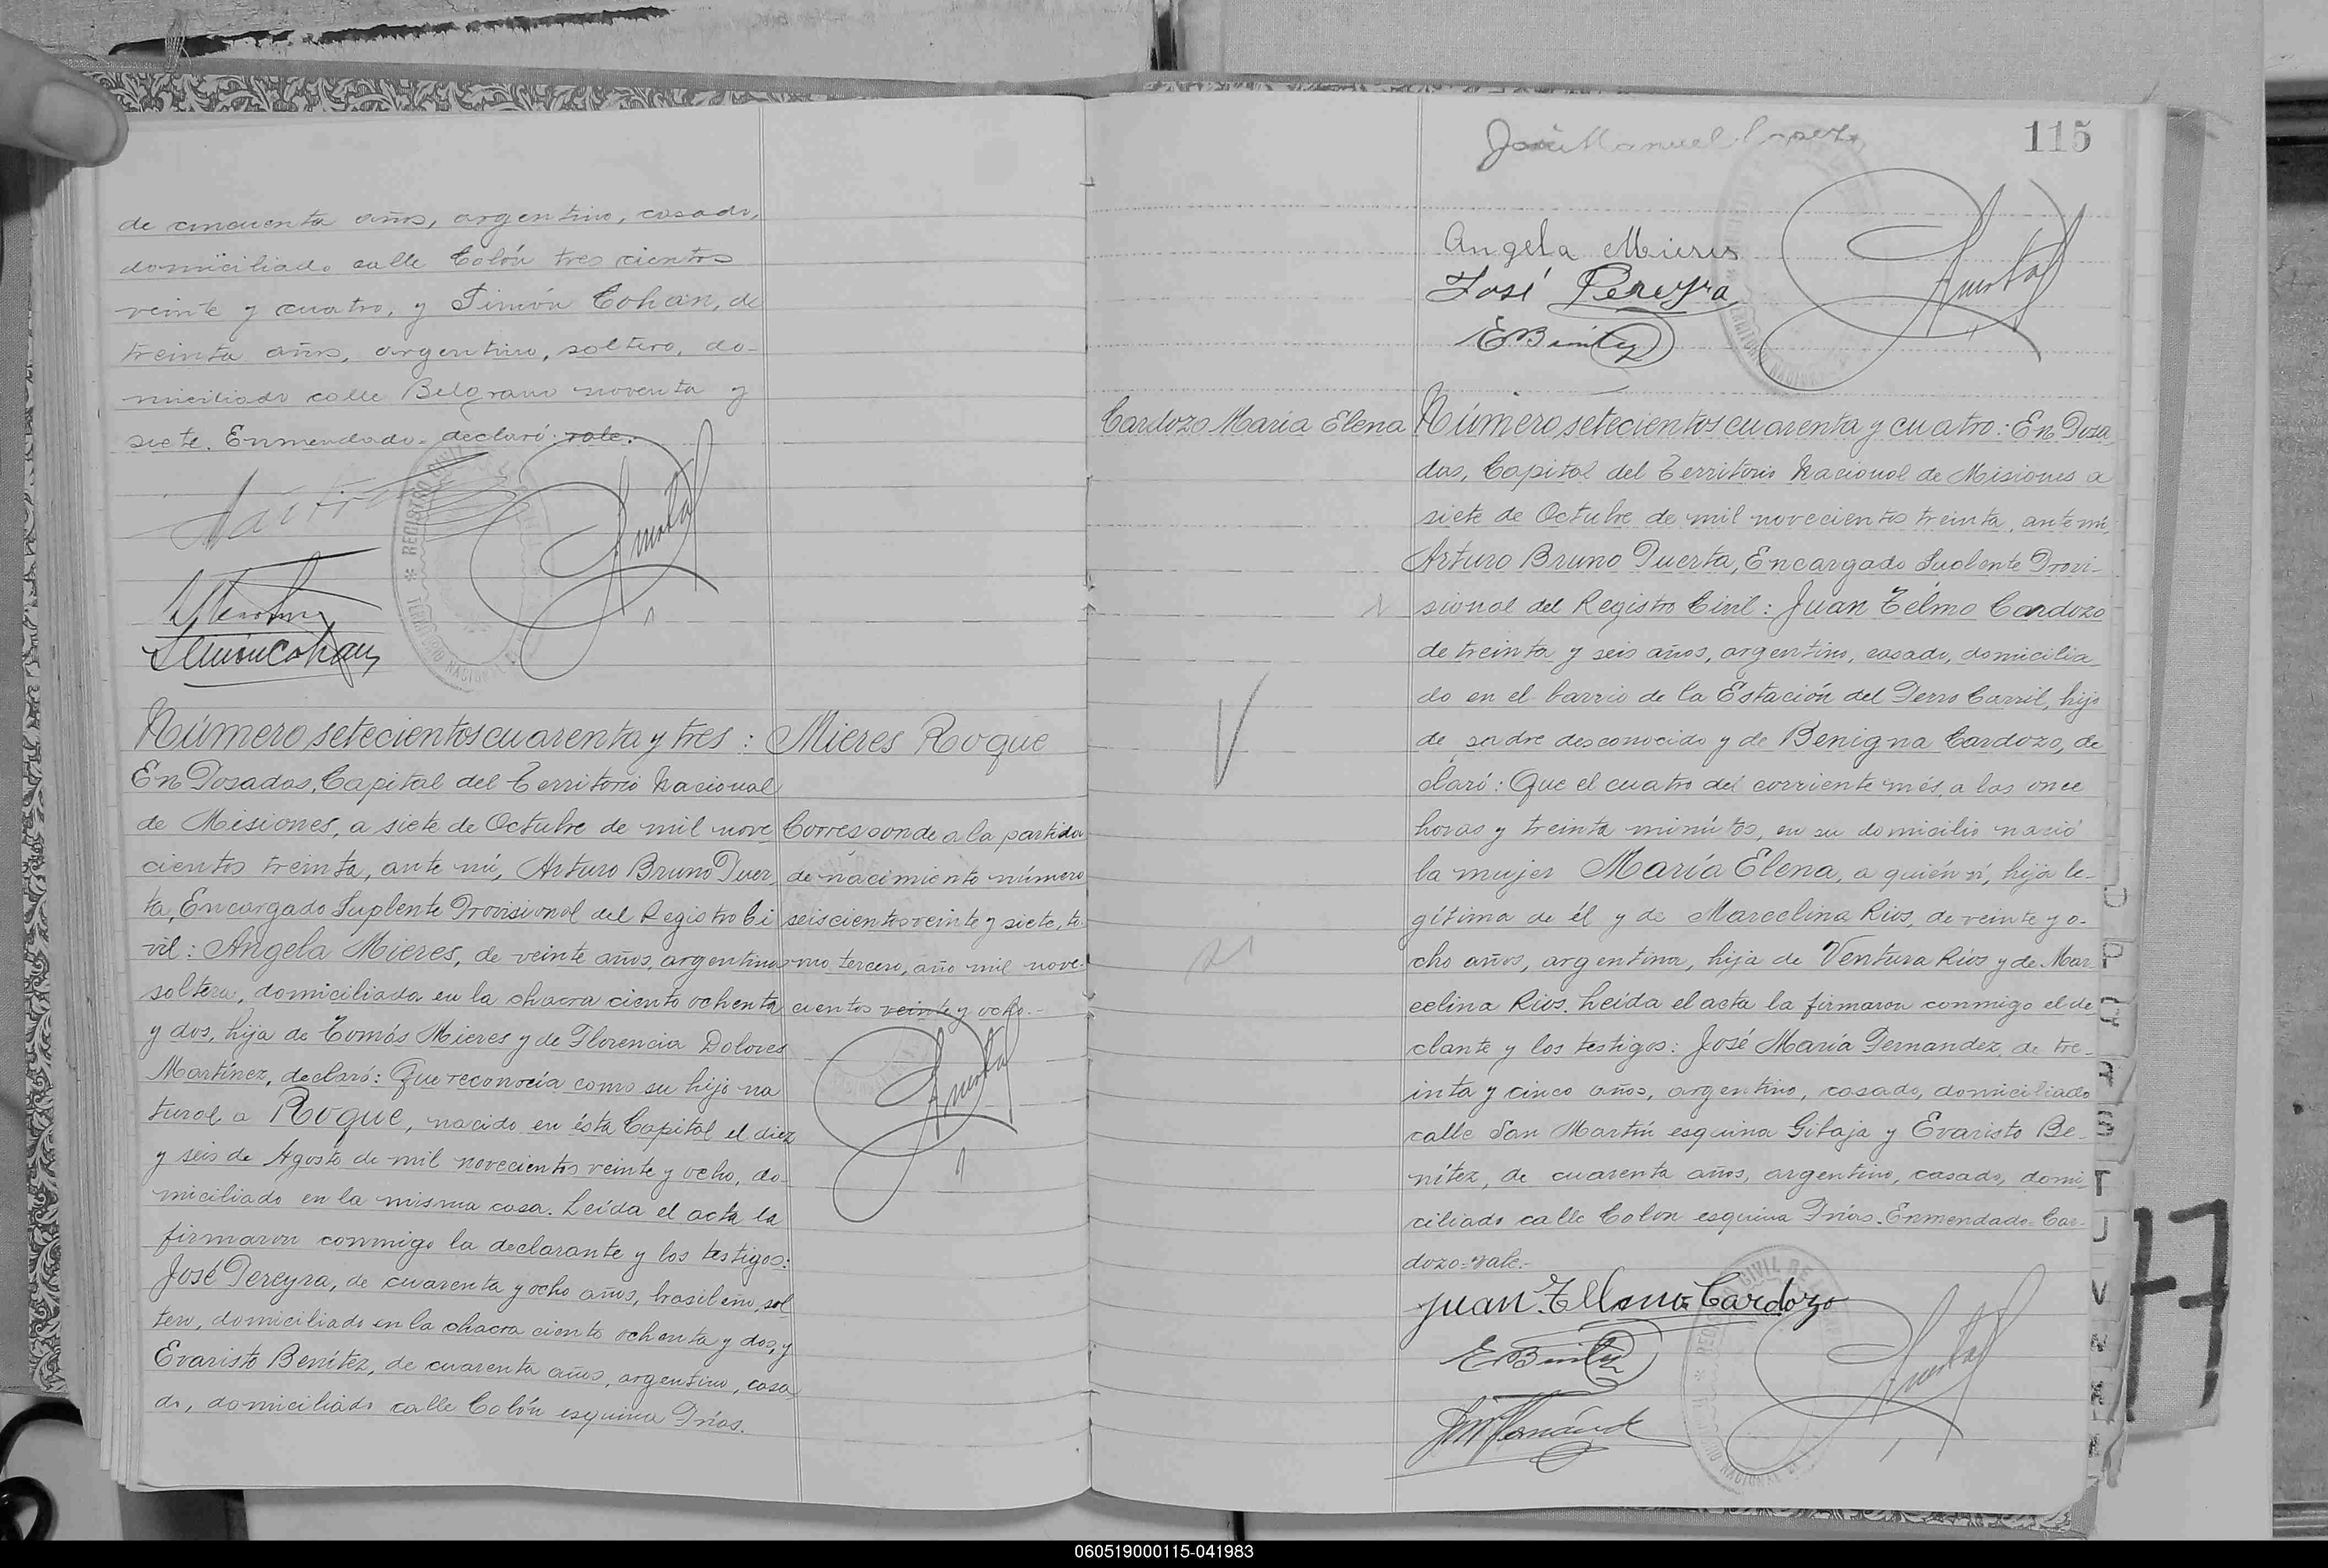 de cincuenta años, argentino, casado,
domiciliado calle Colón tres cientos
veinte y cuatro, y Simón Cohan, de
treinta años, argentino, soltero, do-
miciliado calle Belgrano noventa y
siete. Enmendado= declaró: vale.
REGISTRO CIVIL
TERRITORIO NACIONAL
Simón Cohan
Número setecientos cuarenta y tres:
En Posadas, Capital del Territorio Nacional
de Misiones, a siete de Octubre de mil nove
cientos treinta, ante mí, Arturo Bruno Puer
ta, Encargado Suplente Provisional del Registro Ci
vil: Angela Mieres, de veinte años, argentina
soltera, domiciliada en la chacra ciento ochenta
y dos, hija de Tomás Mieres y de Florencia Dolores
Martínez, declaró: Que reconocía como su hijo na
tural a Roque, nacido en ésta Capital el diez
y seis de Agosto de mil novecientos veinte y ocho, do-
miciliado en la misma casa. Leída el acta la
firmaron conmigo la declarante y los testigos:
José Pereyra, de cuarenta y ocho años, brasileño, sol
tero, domiciliado en la chacra ciento ochenta y dos, y
Evaristo Benítez, de cuarenta años, argentino, casa
do, domiciliado calle Colón esquina Frías.
Mieres Roque
Corresponde a la partida
de nacimiento número
seiscientos veinte y siete, to-
mo tercero, año mil nove-
cientos veinte y ocho.-
115
José Manuel
Angela Mieres
José Pereyra
E Benitez
Cardozo María Elena
Número setecientos cuarenta y cuatro: En Posa
das, Capital del Territorio Nacional de Misiones a
siete de Octubre de mil novecientos treinta, ante mí,
Arturo Bruno Puerta, Encargado Suplente Provi-
sional del Registro Civil: Juan Télmo Cardozo
de treinta y seis años, argentino, casado, domicilia
do en el barrio de la Estación del Ferro Carril, hijo
de padre desconocido y de Benigna Cardozo, de
claró: Que el cuatro del corriente més, a las once
horas y treinta minútos, en su domicilio nació
la mujer María Elena, a quién ví, hija le-
gítima de él y de Marcelina Rios, de veinte y o-
cho años, argentina, hija de Ventura Rios y de Mar
celina Rios. Leída el acta la firmaron conmigo el de
clante y los testigos: José María Fernandez, de tre-
inta y cinco años, argentino, casado, domiciliado
calle San Martín esquina Gibaja y Evaristo Be-
nítez, de cuarenta años, argentino, casado, domi-
ciliado calle Colon esquina Frías. Enmendado= Car-
dozo=vale.-
Juan Telmo Cardozo
E Benitez
060519000115-041983